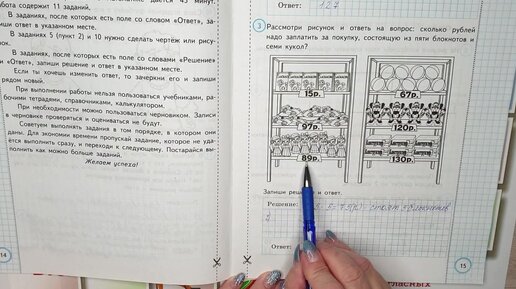 работа содержит 11 заданий.
В заданиях, после которых есть поле со словом «Ответ», запи-
ши ответ в указанном месте.
В заданиях 5 (пункт 2) и 10 нужно сделать чертёж или рису-
нок.
В заданиях, после которых есть поле со словами «Решение»
и «Ответ», запиши решение и ответ в указанном месте.
Если ты хочешь изменить ответ, то зачеркни его и запиши
рядом новый.
При выполнении работы нельзя пользоваться учебниками, ра-
бочими тетрадями, справочниками, калькулятором.
При необходимости можно пользоваться черновиком. Записи
в черновике проверяться и оцениваться не будут.
Советуем выполнять задания в том порядке, в котором они
даны. Для экономии времени пропускай задание, которое не уда-
ётся выполнить сразу, и переходи к следующему. Постарайся вы-
полнить как можно больше заданий.
Желаем успеха!
14
Ответ: 127
3 Рассмотри рисунок и ответь на вопрос: сколько рублей
надо заплатить за покупку, состоящую из пяти блокнотов и
семи кукол?
15р. 67р.
97р. 120р.
89р. 130р.
Запиши решение и ответ.
Решение:
Ответ:
15